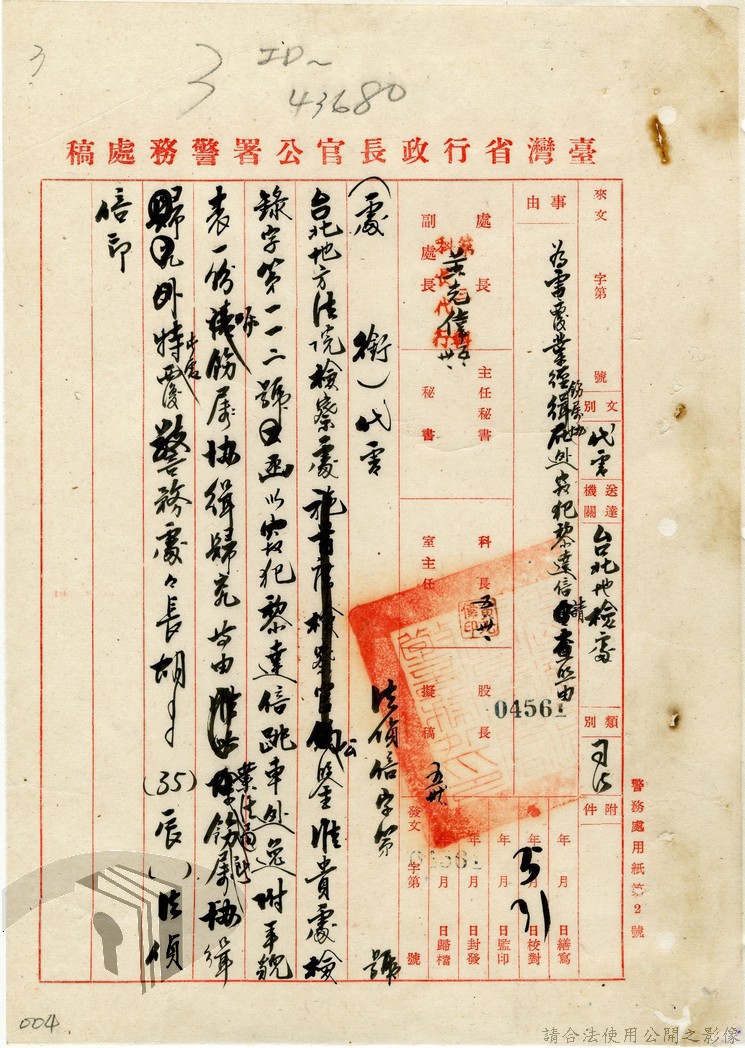 3
3
ID~
43680
臺灣省行政長官公署警務處稿
來文 字第 號
文別 代電
送達機關 台北地檢處
類別 司法
附件
事由
為電覆業經飭屬協緝在逃
犯黎達信請查照由
處長
副處長
科長代行
主任秘書
秘書
科長
室主任
股長
擬稿
04561
年 月 日繕寫
年 月 日校對
年 月 日監印
年 月 日封發
年 月 日歸檔
發文 字第 號
04561
5
31
(處銜)代電 法偵信字第 號
台北地方法院檢察處公鑒准貴處檢
錄字第一一二號函以犯黎達信跳車逃附年貌
表一份請飭屬協緝歸案等由業經飭屬協緝
歸外特覆警務處處長胡 (35)辰( )法偵
信印
警務處用紙第2號
004
請合法使用公開之影像